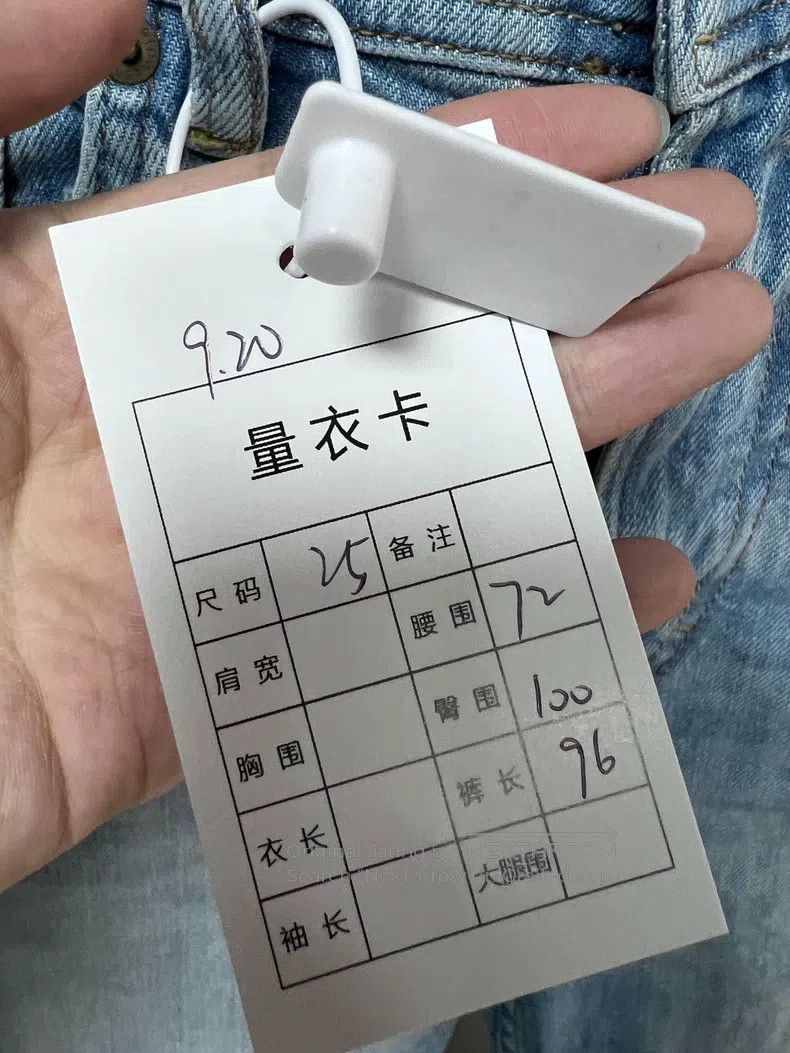 9.20
量衣卡
尺码 25 备注
肩宽 腰围 72
胸围 臀围 100
衣长 裤长 96
袖长 大腿围
Original listing by